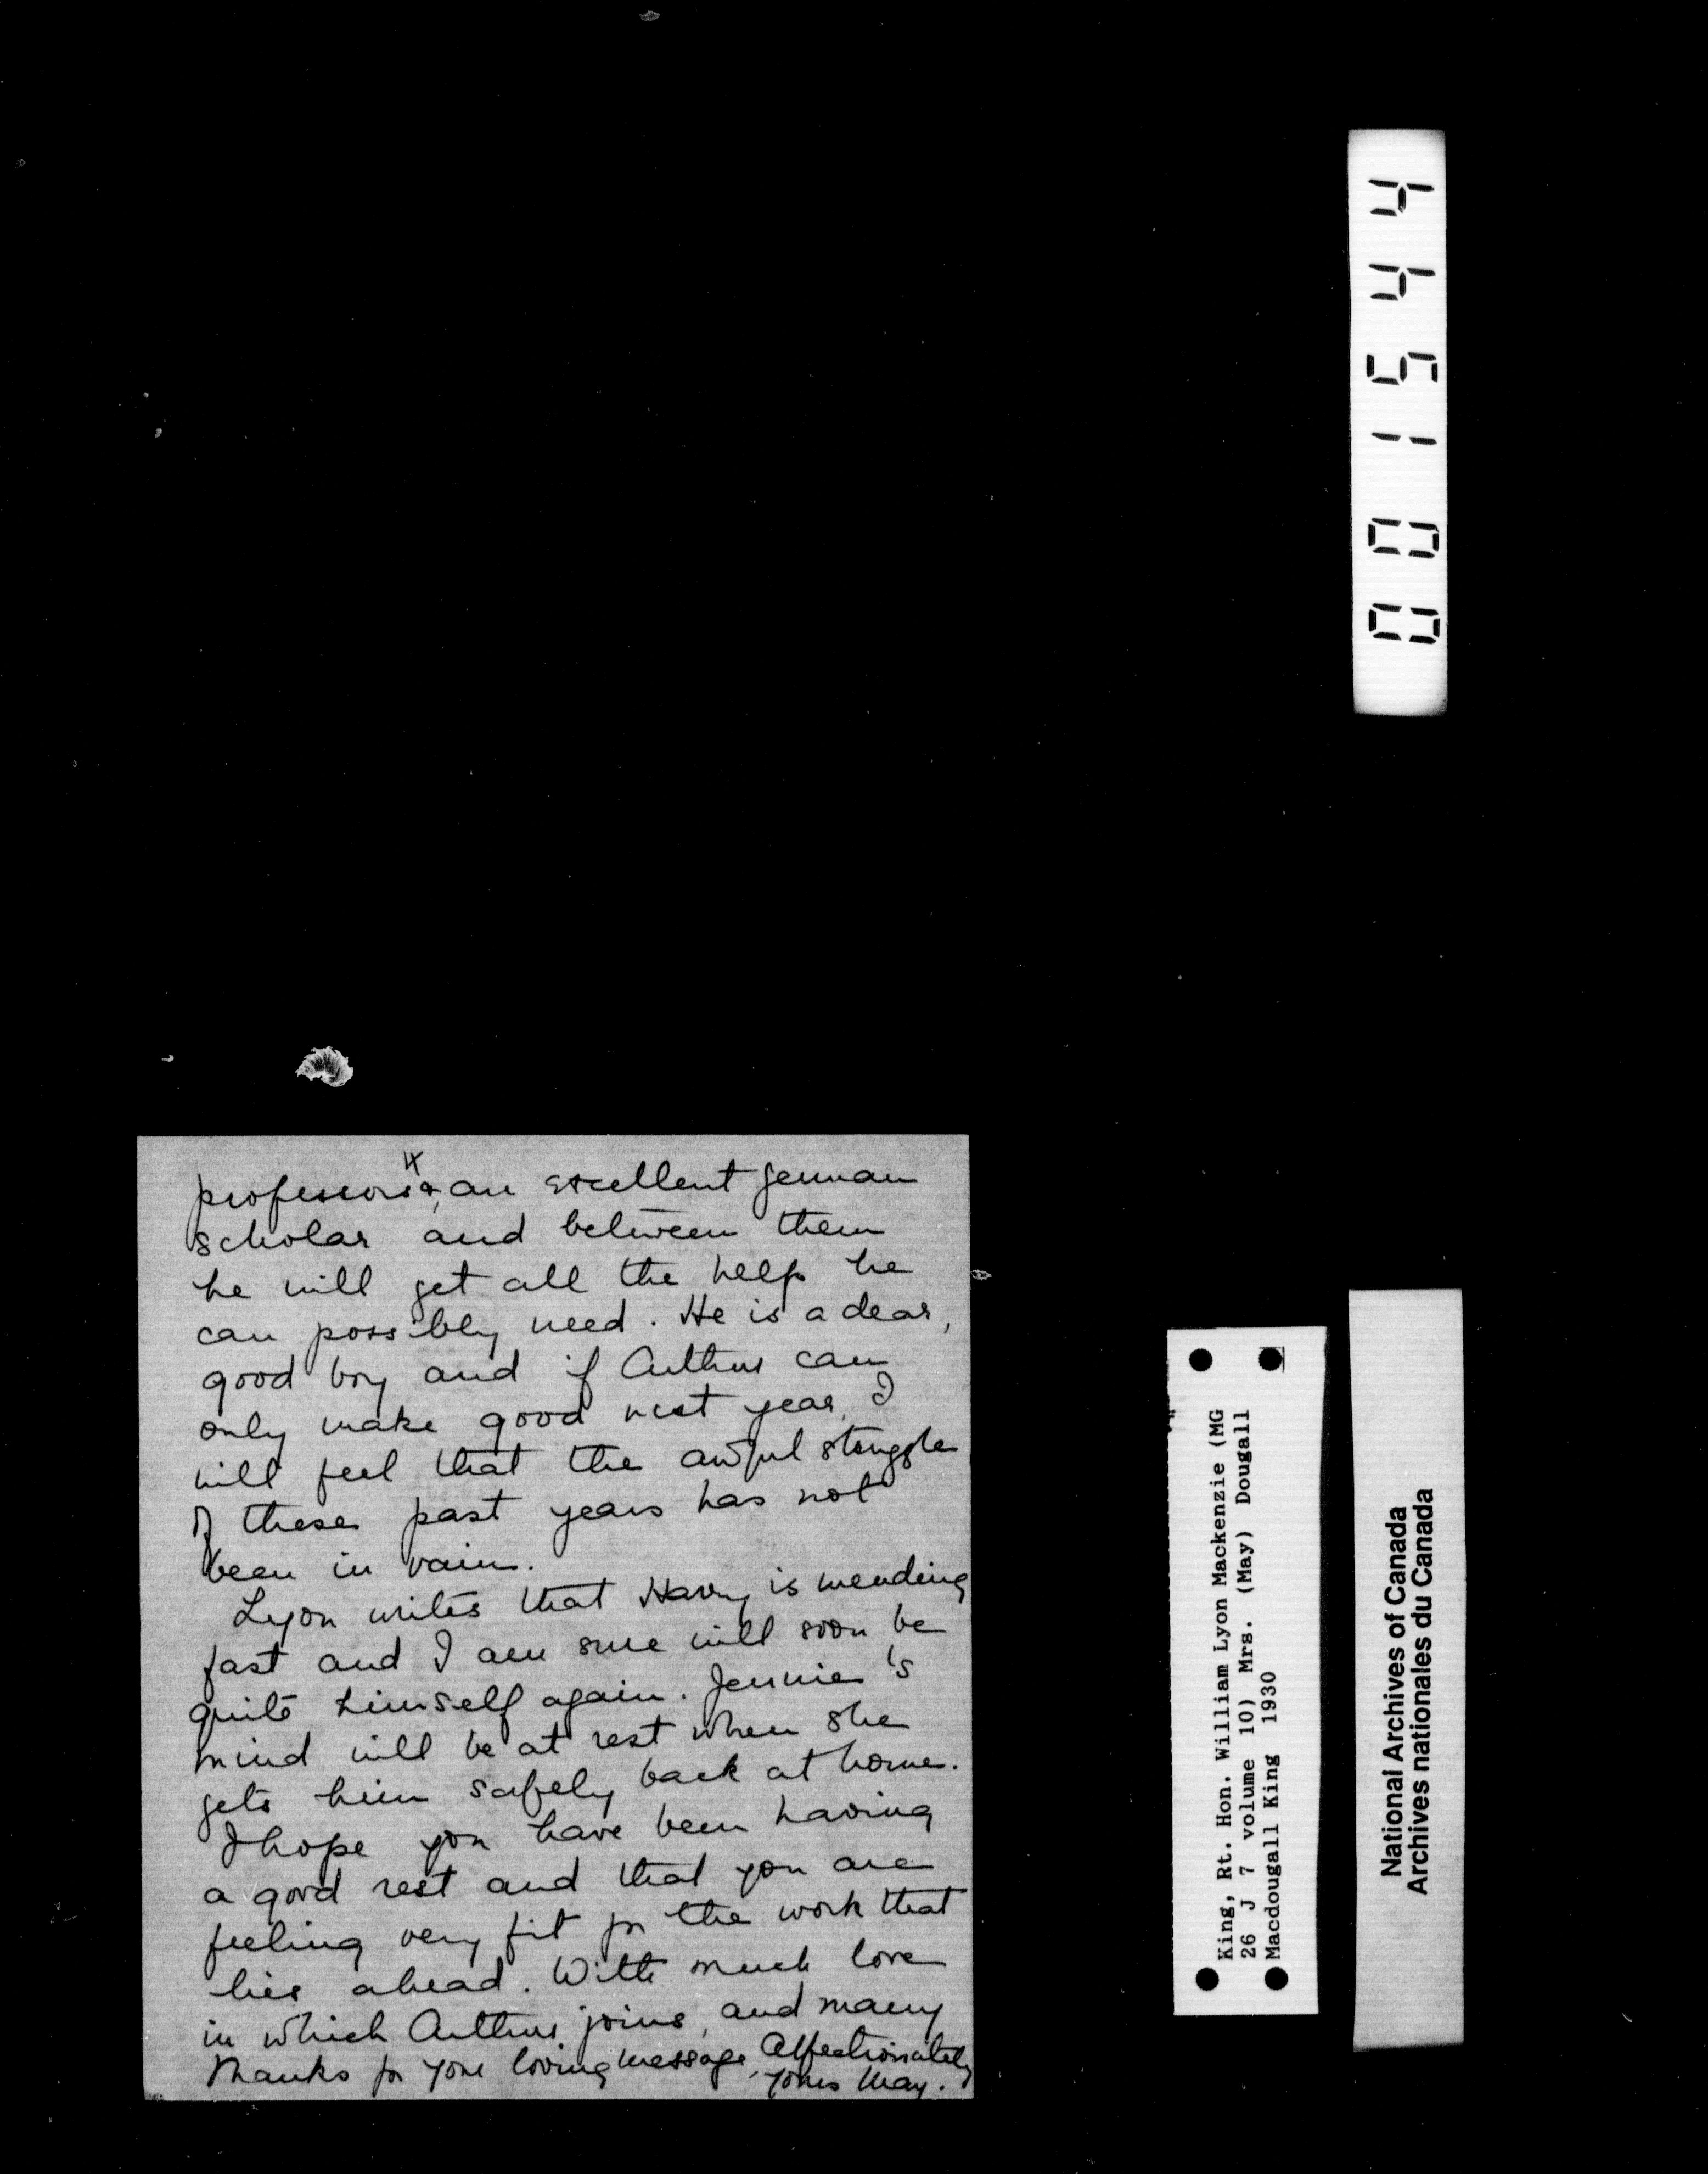 professors & an excellent German
scholar and between them
he will get all the help he
can possibly need. He is a dear,
good boy and if Arthur can
only make good next year, I
will feel that the awful struggle
of these past years has not
been in vain.
Lyon writes that Harry is mending
fast and I am sure will soon be
quite himself again. Jennie's
mind will be at rest when she
gets him safely back at home.
I hope you have been having
a good rest and that you are
feeling very fit for the work that
lies ahead. With much love
in which Arthur joins, and many
thanks for your loving message, Affectionately
yours May.
001544
King, Rt. Hon. William Lyon Mackenzie (MG
26 J 7 volume 10) Mrs. (May) Dougall
Macdougall King 1930
National Archives of Canada
Archives nationales du Canada